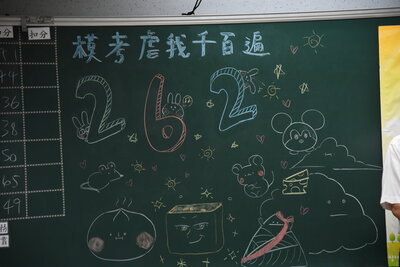 分 扣分
模考虐我千百遍
262
44
36
38
50
65
49